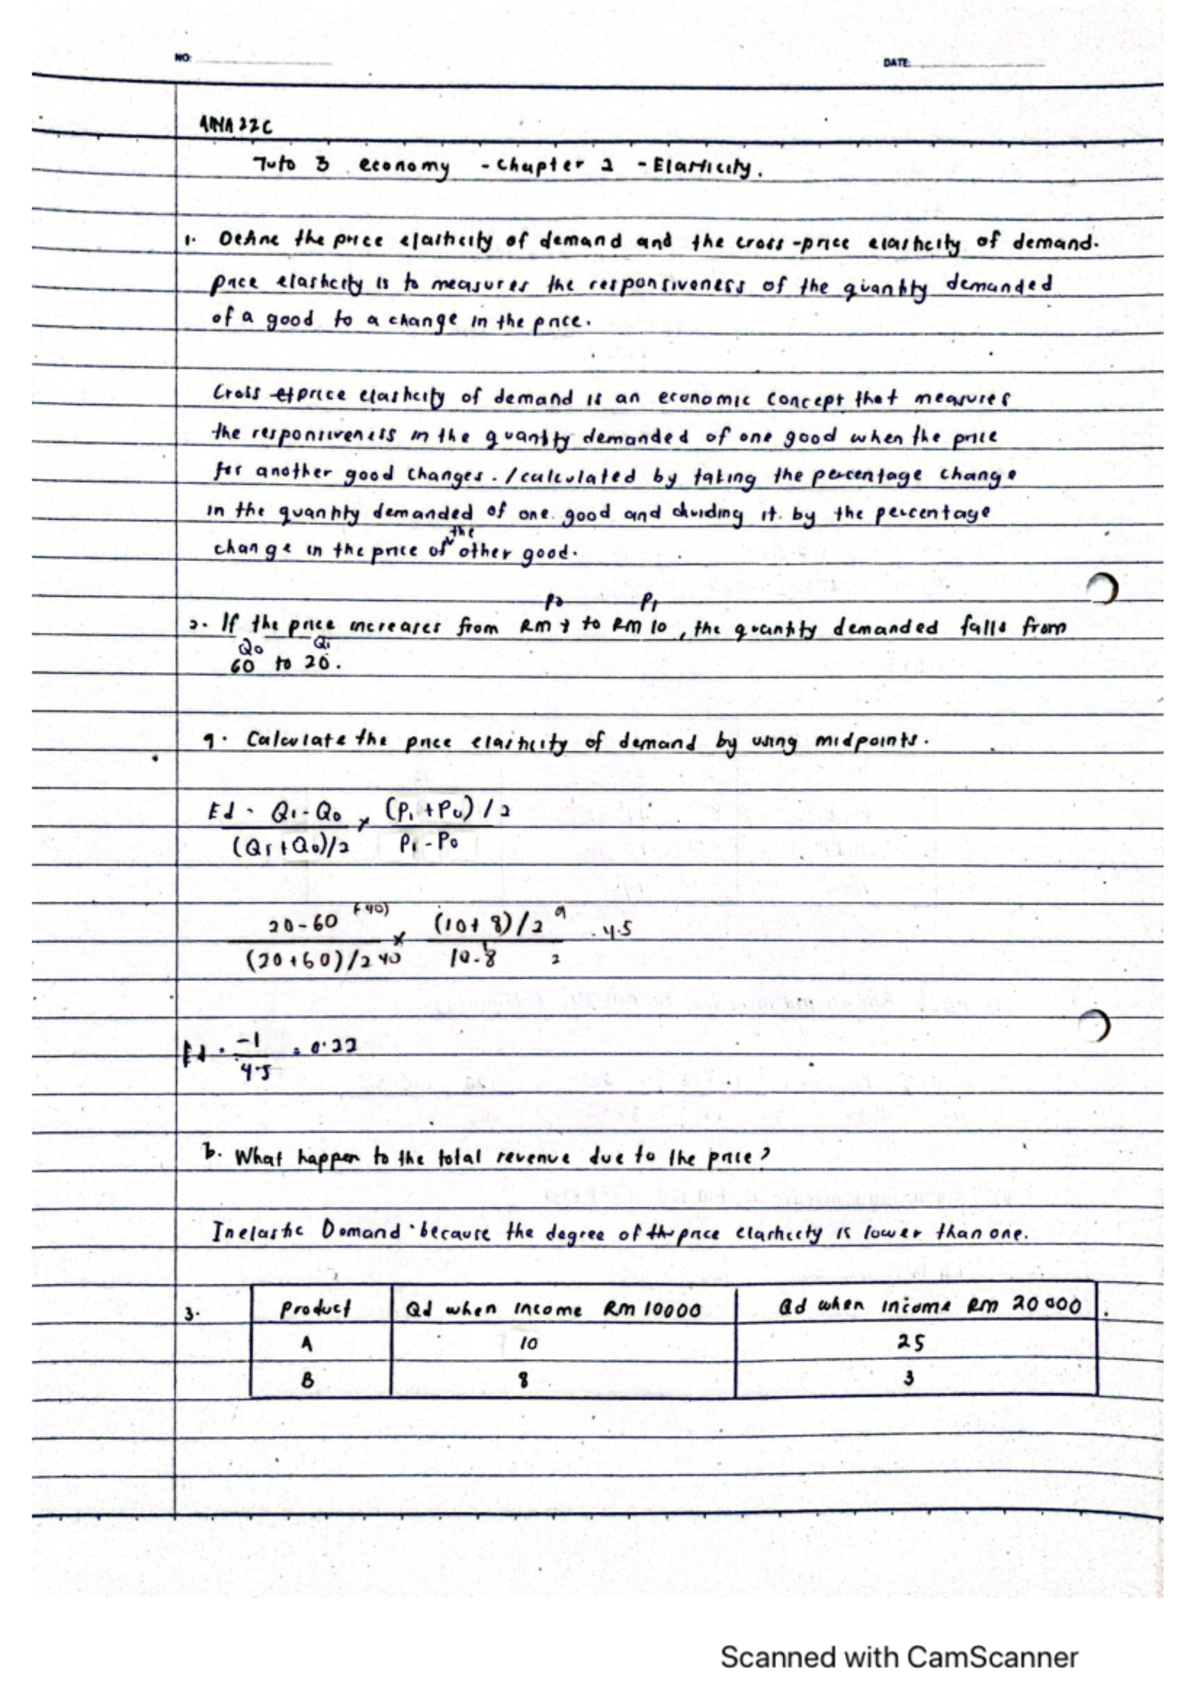 NO:
DATE:
Tuto 3 economy - Chapter 2 - Elasticity.
1. Define the price elasticity of demand and the cross-price elasticity of demand.
price elasticity is to measures the responsiveness of the quantity demanded
of a good to a change in the price.
Cross price elasticity of demand is an economic concept that measures
the responsiveness in the quantity demanded of one good when the price
for another good changes. / calculated by taking the percentage change
in the quantity demanded of one good and dividing it by the percentage
the
change in the price of other good.
P1
2. If the price increases from RM to RM 10, the quantity demanded falls from
Q0 Q1
60 to 20.
a. Calculate the price elasticity of demand by using midpoints.
Ed = Q1 - Q0 × (P1 + P0) / 2
(Q1 + Q0)/2 P1 - P0
(-40) 9
20-60 × (10+8)/2 = 4.5
(20+60)/2 40 10-8 2
Ed = -1 = 0.22
4.5
b. What happen to the total revenue due to the price?
Inelastic Demand because the degree of the price elasticity is lower than one.
3. Product Qd when income RM 10000 Qd when income RM 20000
A 10 25
B 8 3
Scanned with CamScanner